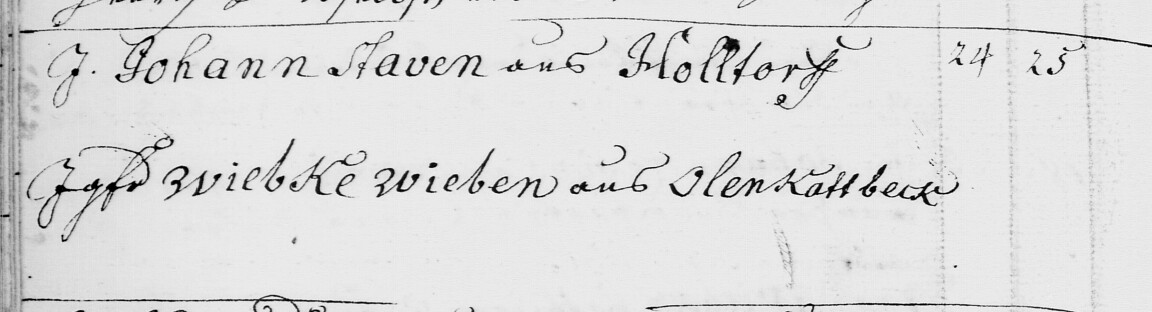 J. Johann Staven aus Holltorff 24 25
Jgfr Wiebke Wieben aus OlenKattbeck